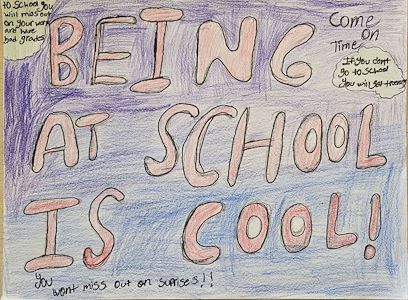 to school you
will miss out
on your work
and have
bad grades
BEING
Come
on
Time
If you dont
go to school
you will get
AT SCHOOL
IS COOL!
You
wont miss out on suprises!!